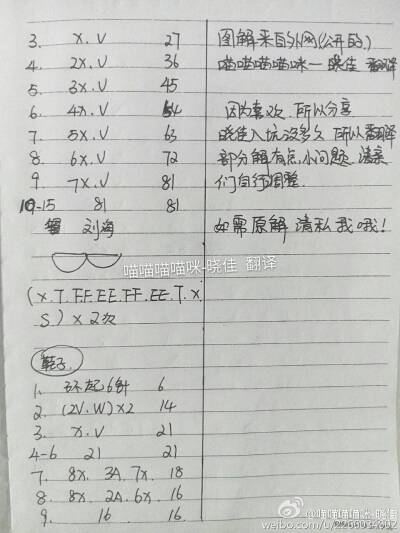 3. X.V 27
4. 2X.V 36
5. 3X.V 45
6. 4X.V 54
7. 5X.V 63
8. 6X.V 72
9. 7X.V 81
10-15 81 81
刘海
(X.T.FF.EE.FF.EE.T.X
S.)X2次
鞋子
1. 环起6针 6
2. (2V.W)X2 14
3. X.V 21
4-6 21 21
7. 8X.3A.7X.18
8. 8X.2A.6X.16
9. 16 16
图解来自外网(公开的)
喵喵喵喵咪—晓佳 翻译
因为喜欢,所以分享
晓佳入坑没多久 所以翻译
部分解有点小问题 请亲
们自行调整
如需原解 请私我哦!
喵喵喵喵咪-晓佳 翻译
@喵喵喵喵咪-晓佳